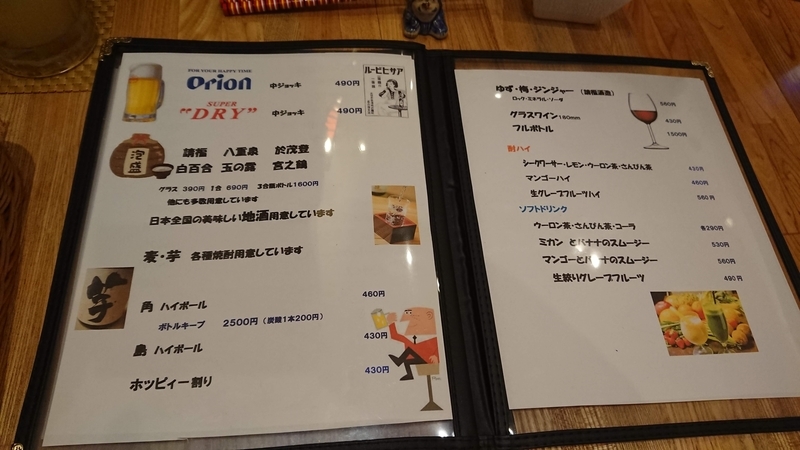 FOR YOUR HAPPY TIME
Orion 中ジョッキ 490円
アサヒビール
SUPER
"DRY" 中ジョッキ 490円
泡盛
請福 八重泉 於茂登
白百合 玉の露 宮之鶴
グラス 390円 1合 690円 3合瓶ボトル1600円
他にも多数用意しています
日本全国の美味しい地酒用意しています
麦・芋 各種焼酎用意しています
芋
角 ハイボール 460円
ボトルキープ 2500円(炭酸1本200円)
島 ハイボール 430円
ホッピィー割り 430円
ゆず・梅・ジンジャー (請福酒造)
ロック・ミネラル・ソーダ 560円
グラスワイン180mm 430円
フルボトル 1500円
酎ハイ
シークワーサー・レモン・ウーロン茶・さんぴん茶 430円
マンゴーハイ 460円
生グレープフルーツハイ 560円
ソフトドリンク
ウーロン茶・さんぴん茶・コーラ 各290円
ミカン とバナナのスムージー 530円
マンゴーとバナナのスムージー 560円
生絞りグレープフルーツ 490円